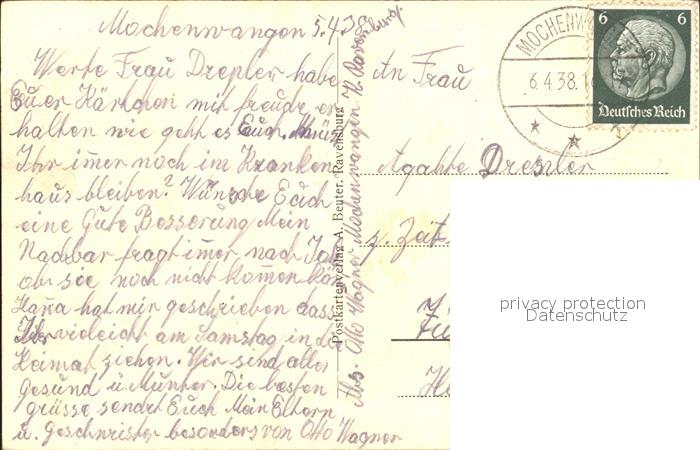 Mochenwangen 5.4.38
Werte Frau Drexler habe
Euer Kärtchen mit freude er
halten wie geht es Euch. Müßt
Ihr imer noch im Kranken
haus bleiben? Wünsche Euch
eine Gute Besserung Mein
Nachbar fragt imer nach
ob sie noch nicht komen kön
Hana hat mir geschrieben dass
Ihr vieleicht am Samstag in die
Heimat ziehen. Wir sind alle
Gesund u. Munter. Die besten
grüsse sendet Euch Mein Eltern
u. Geschwister besonders von Otto Wagner
Abs. Otto Wagner Mochenwangen K. Ravensburg
Postkartenverlag A. Beuter, Ravensburg
An Frau
Agathe Drexler
z. Zeit
MOCHENW
6.4.38.1
6 6
Deutsches Reich
privacy protection
Datenschutz